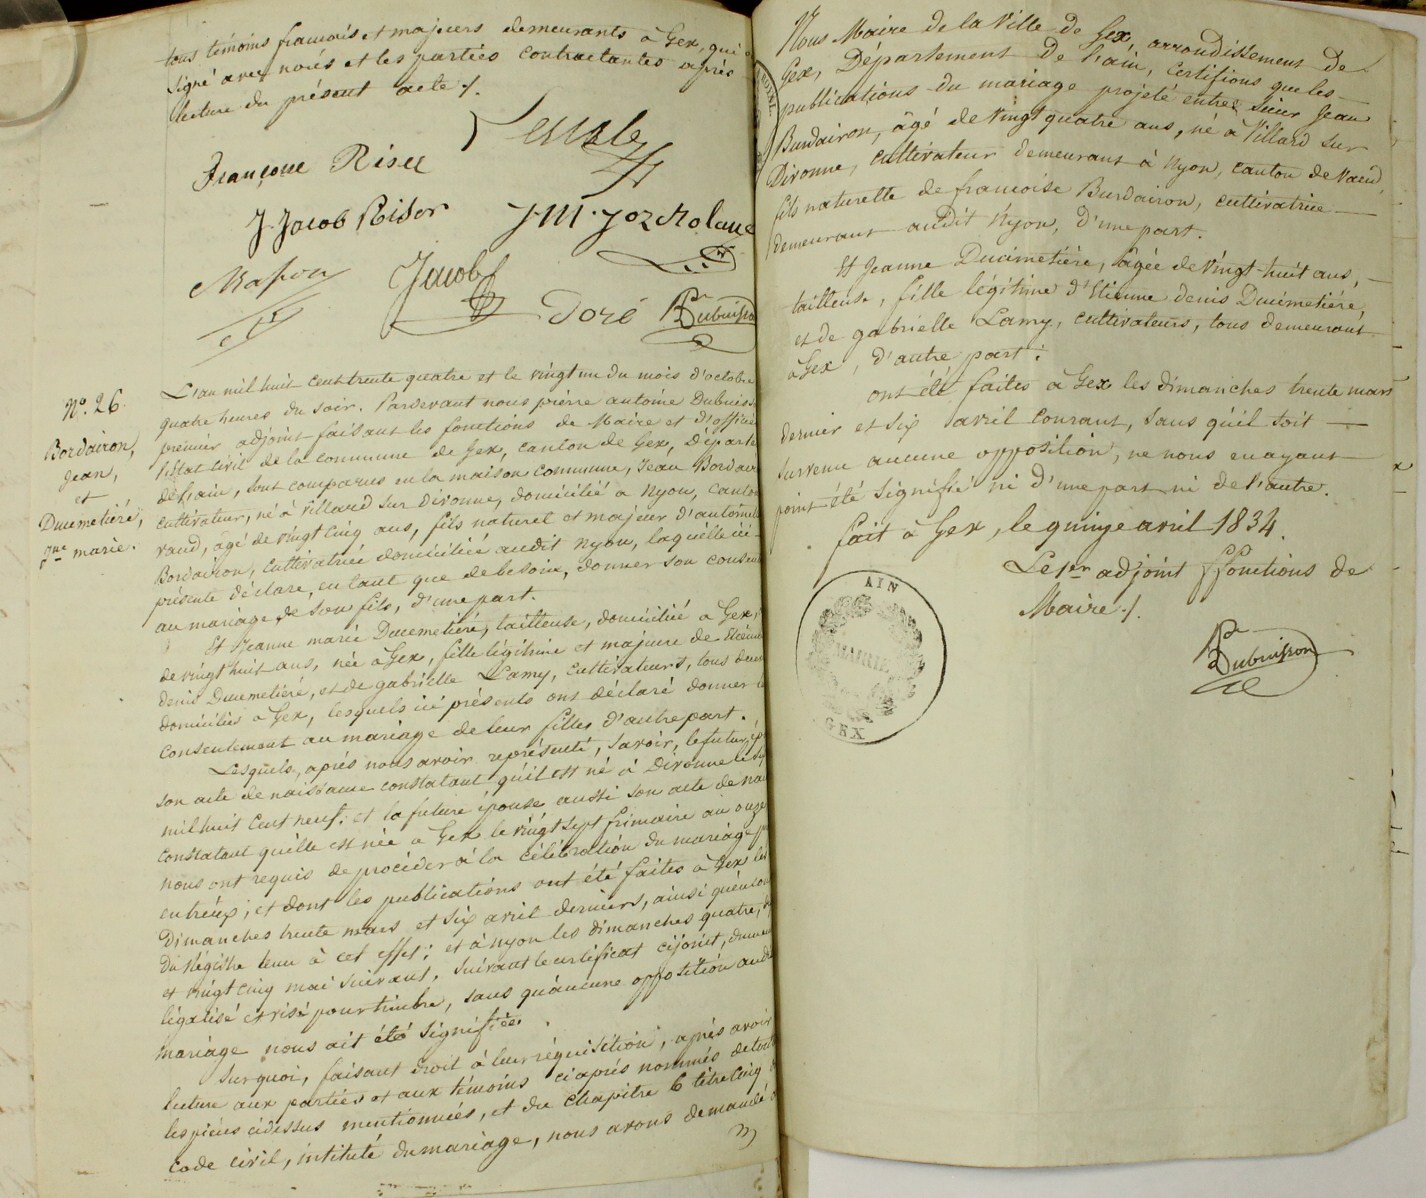 tous témoins francais et majeurs demeurants à Gex, qui
signé avec nous et les parties contractantes après
lecture du présent acte /.
Françoise
J. Jacob
Masson
Jacob
Doré
Dubuisson
N°. 26.
Bordairon,
Jean,
et
Ducimetiére,
Jne marie.
L'an mil huit cent trente quatre et le vingt un du mois d'octobre
quatre heures du soir. Pardevant nous pierre antoine Dubuiss
premier adjoint faisant les fonctions de Maire et d'officier
l'état civil de la commune de Gex, canton de Gex, Départe
de l'ain, sont comparus en la maison commune, Jean Bordair
cultivateur, né à Villard sur Divonne, domicilié a Nyon, canton
vaud, agé de vingt cinq ans, fils naturel et majeur d'antoinette
Bordairon, cultivatrice domiciliée audit Nyon, laquelle ici
présente déclare, en tant que de besoin, donner son consent
au mariage de son fils, d'une part.
Et Jeanne marie Ducimetiére, tailleuse, domiciliée à Gex,
de vingt huit ans, née à Gex, fille légitime et majeure de Etienne
denis Ducimetiére, et de gabrielle Lamy, cultivateurs, tous deux
domiciliés à Gex, lesquels ici présents ont déclaré donner
consentement au mariage de leur fille, d'autre part.
Lesquels, après nous avoir représenté, savoir, le futur ép
son acte de naissance constatant qu'il est né à Divonne le
mil huit cent neuf; et la future épouse aussi son acte de nai
constatant qu'elle est née a Gex le vingt sept frimaire an onze
nous ont requis de procéder à la célébration du mariage p
entr'eux; et dont les publications ont été faites à Gex les
Dimanches trente mars et six avril derniers, ainsi qu'en
du Régistre tenu à cet effet; et à Nyon les dimanches quatre,
et vingt cinq mai suivant, suivant le certificat cijoint, dument
légalisé et visé pour timbre, sans qu'aucune opposition audit
mariage nous ait été signifiée.
Sur quoi, faisant droit à leur réquisition, après avoir
lecture aux parties et aux témoins ci après nommés de tout
les pièces cidessus mentionnées, et du chapitre 6 titre cinq
code civil, intitulé du mariage, nous avons demandé
Nous Maire de la Ville de Gex, arrondissement de
Gex, Département de l'ain, certifions que les
publications du mariage projeté entre sieur Jean
Burdairon, âgé de vingt quatre ans, né à Villard sur
Divonne, cultivateur demeurant à Nyon, canton de Vaud,
fils naturelle de francoise Burdairon, cultivatrice
demeurant audit Nyon, d'une part.
Et Jeanne Ducimetiére, âgée de vingt-huit ans,
tailleuse, fille légitime d'Etienne denis Ducimetiére,
et de gabrielle Lamy, cultivateurs, tous demeurant
à Gex, d'autre part:
ont été faites à Gex les dimanches trente mars
dernier et six avril courant, sans qu'il soit
survenu aucune opposition, ne nous en ayant
point été signifié ni d'une part ni de l'autre.
fait à Gex, le quinze avril 1834.
Le 1er adjoint ff fonctions de
Maire /.
Dubuisson
AIN
MAIRIE
GEX
ROYAL